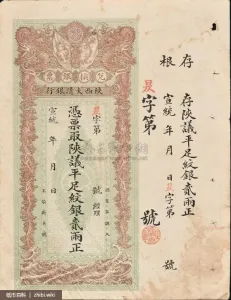 存根
存陝議平足紋銀貳兩正
宣統 年 月 日 字第 號
字第 號
陝西大清銀行
字第 號 經理
憑票取陝議平足紋銀貳兩正
宣統 年 月 日
zhibi.wiki